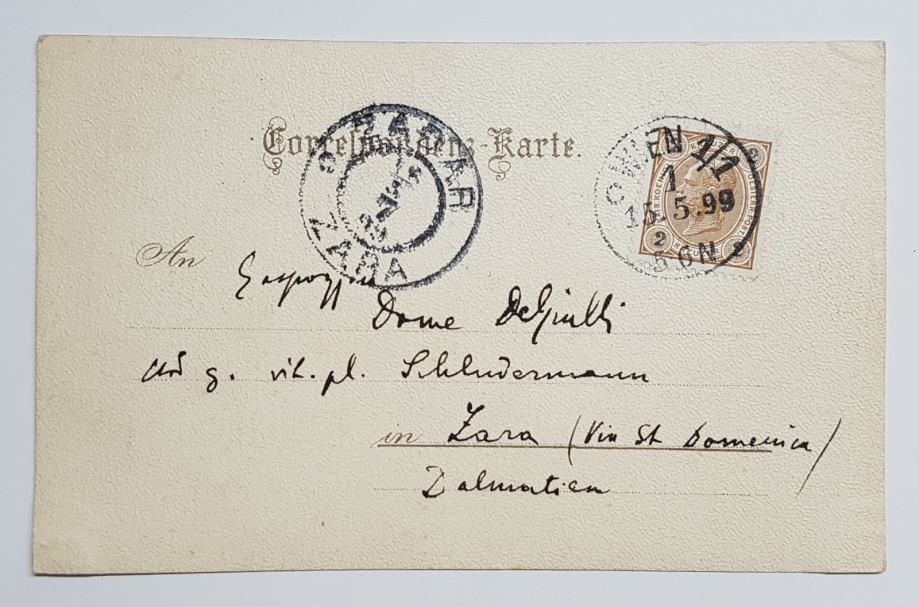 Correspondenz-Karte.
ZADAR
ZARA
WIEN 1/1
1
15.5.99
2
5 6N
An
Dome Delgiulli
kod g. vit. pl. Schludermann
in Zara (Via St Domenica)
Dalmatien